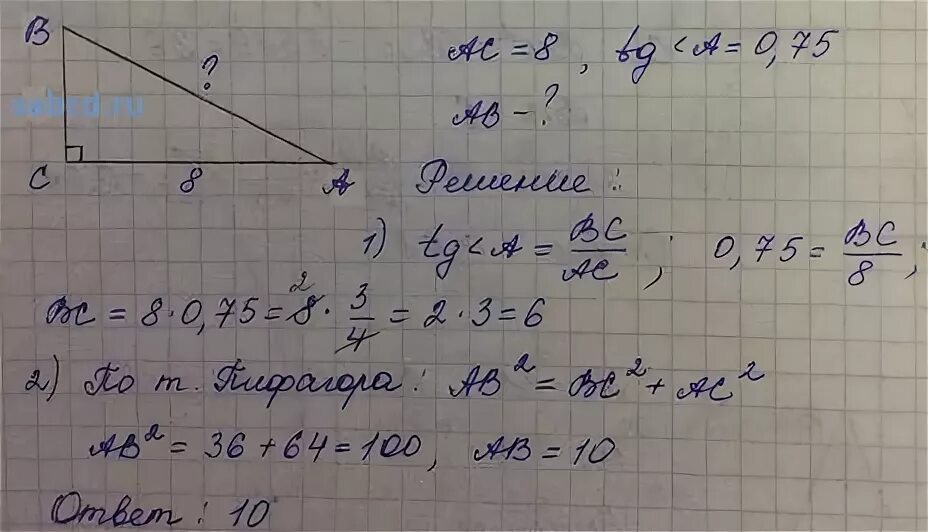 B
?
AC = 8 , tg < A = 0,75
AB - ?
C
8
A
Решение :
1) tg < A = BC/AC ; 0,75 = BC/8 ,
BC = 8 · 0,75 = 8 2 · 3/4 = 2 · 3 = 6
2) По т. Пифагора : AB² = BC² + AC²
AB² = 36 + 64 = 100, AB = 10
Ответ : 10